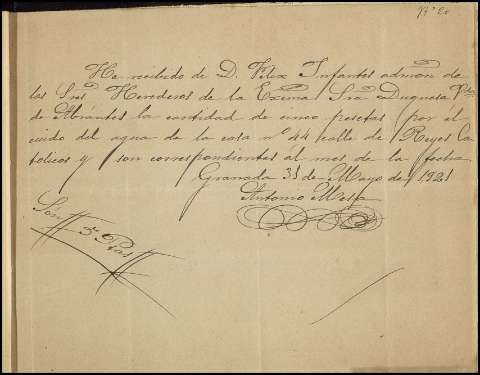 Nº 20
He recibido de D. Felix Infantes admon de
los Sres Herederos de la Excma Sra Duquesa Vda
de Abrantes la cantidad de cinco pesetas por el
cuido del agua de la casa nº 44 calle de Reyes Ca
tolicos y son correspondientes al mes de la fecha
Granada 31 de Mayo de 1921
Antonio
Son 5 Ptas